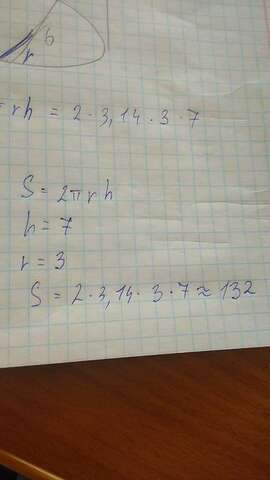 6
r
πrh = 2·3,14·3·7
S = 2πrh
h = 7
r = 3
S = 2·3,14·3·7 ≈ 132